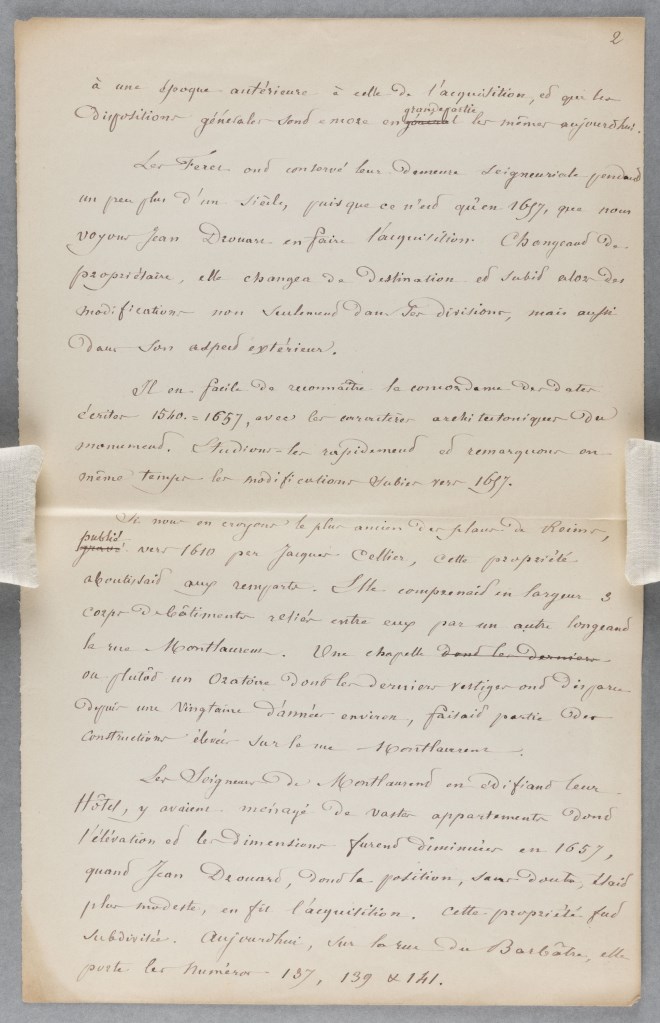 2
à une époque antérieure à celle de l'acquisition, et que les
grande partie
dispositions générales sont encore en général les mêmes aujourd'hui.
Les Feret ont conservé leur demeure seigneuriale pendant
un peu plus d'un siècle, puisque ce n'est qu'en 1657, que nous
voyons Jean Drouart en faire l'acquisition. Changeant de
propriétaire, elle changea de destination et subit alors des
modifications non seulement dans ses divisions, mais aussi
dans son aspect extérieur.
Il est facile de reconnaître la concordance des dates
écrites 1540 = 1657, avec les caractères architectoniques du
monument. Etudions-les rapidement et remarquons en
même temps les modifications subies vers 1657.
Si nous en croyons le plus ancien des plans de Reims,
publié
gravé vers 1610 par Jacques Cellier, cette propriété
aboutissait aux remparts. Elle comprenait en largeur 3
corps de bâtiments reliés entre eux par un autre longeant
la rue Montlaurent. Une chapelle dont les derniers
ou plutôt un Oratoire dont les derniers vestiges ont disparu
depuis une vingtaine d'années environ, faisait partie des
constructions élevées sur la rue Montlaurent.
Les Seigneurs de Montlaurent en édifiant leur
Hôtel, y avaient ménagé de vastes appartements dont
l'élévation et les dimensions furent diminuées en 1657,
quand Jean Drouard, dont la position, sans doute, était
plus modeste, en fit l'acquisition. Cette propriété fut
subdivisée. Aujourd'hui, sur la rue du Barbâtre, elle
porte les numéros 137, 139 & 141.